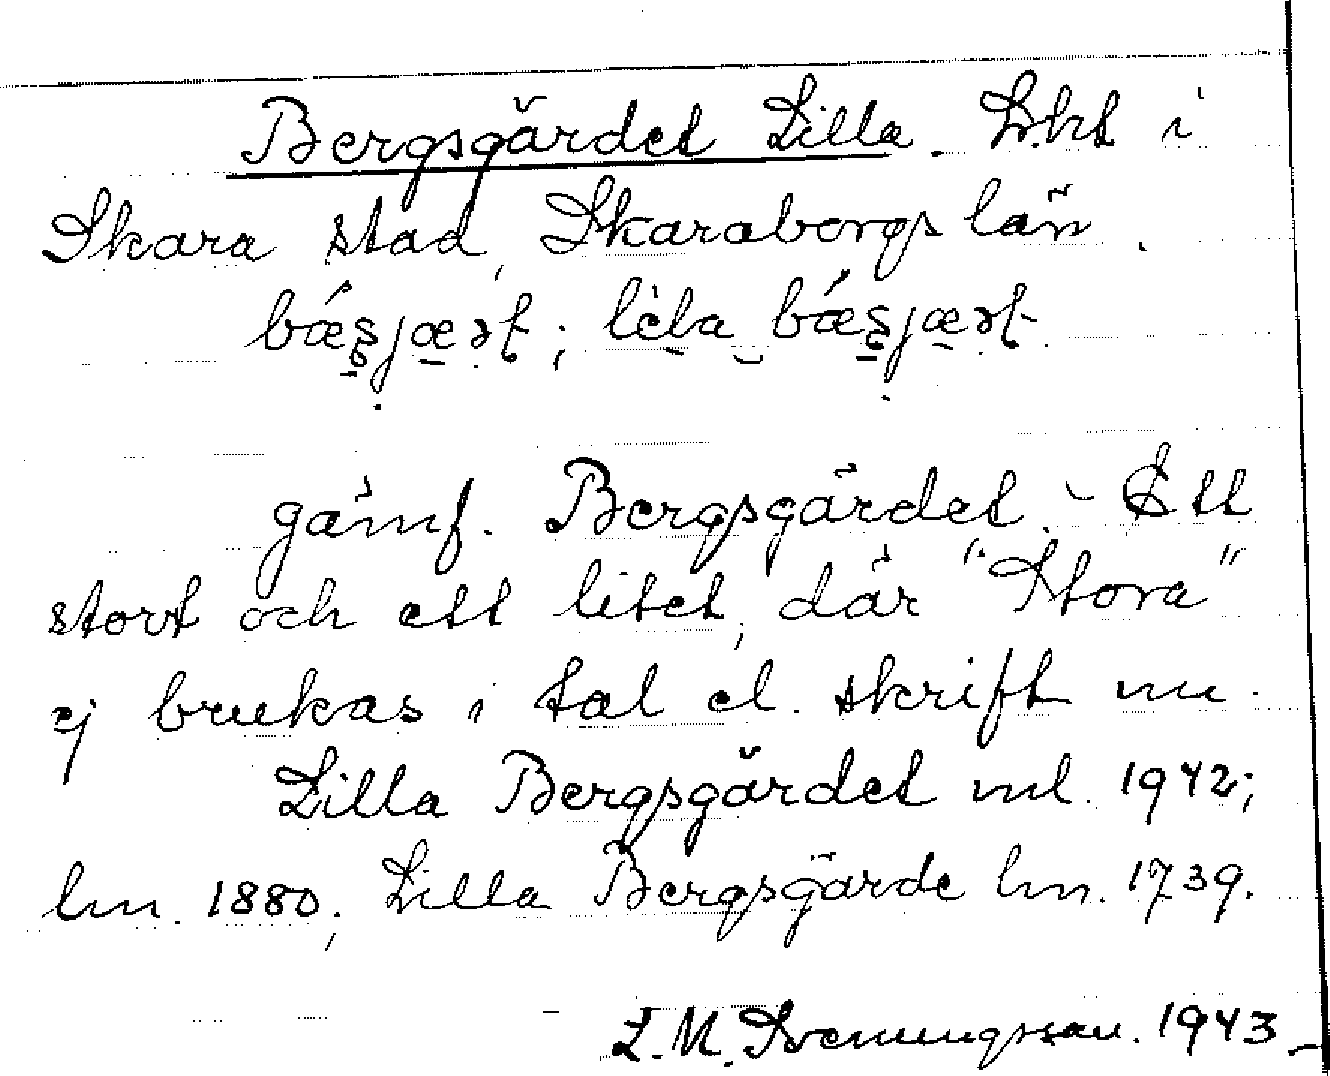 Bergsgärdet Lilla. L.ht i
Skara stad, Skaraborgs län.
gämf. Bergsgärdet. - Ett
stort och ett litet, där "Stora"
ej brukas i tal el. skrift nu.
Lilla Bergsgärdet ml. 1942;
lm. 1880; Lilla Bergsgärde lm. 1739.
L. M. Svenungsson. 1943